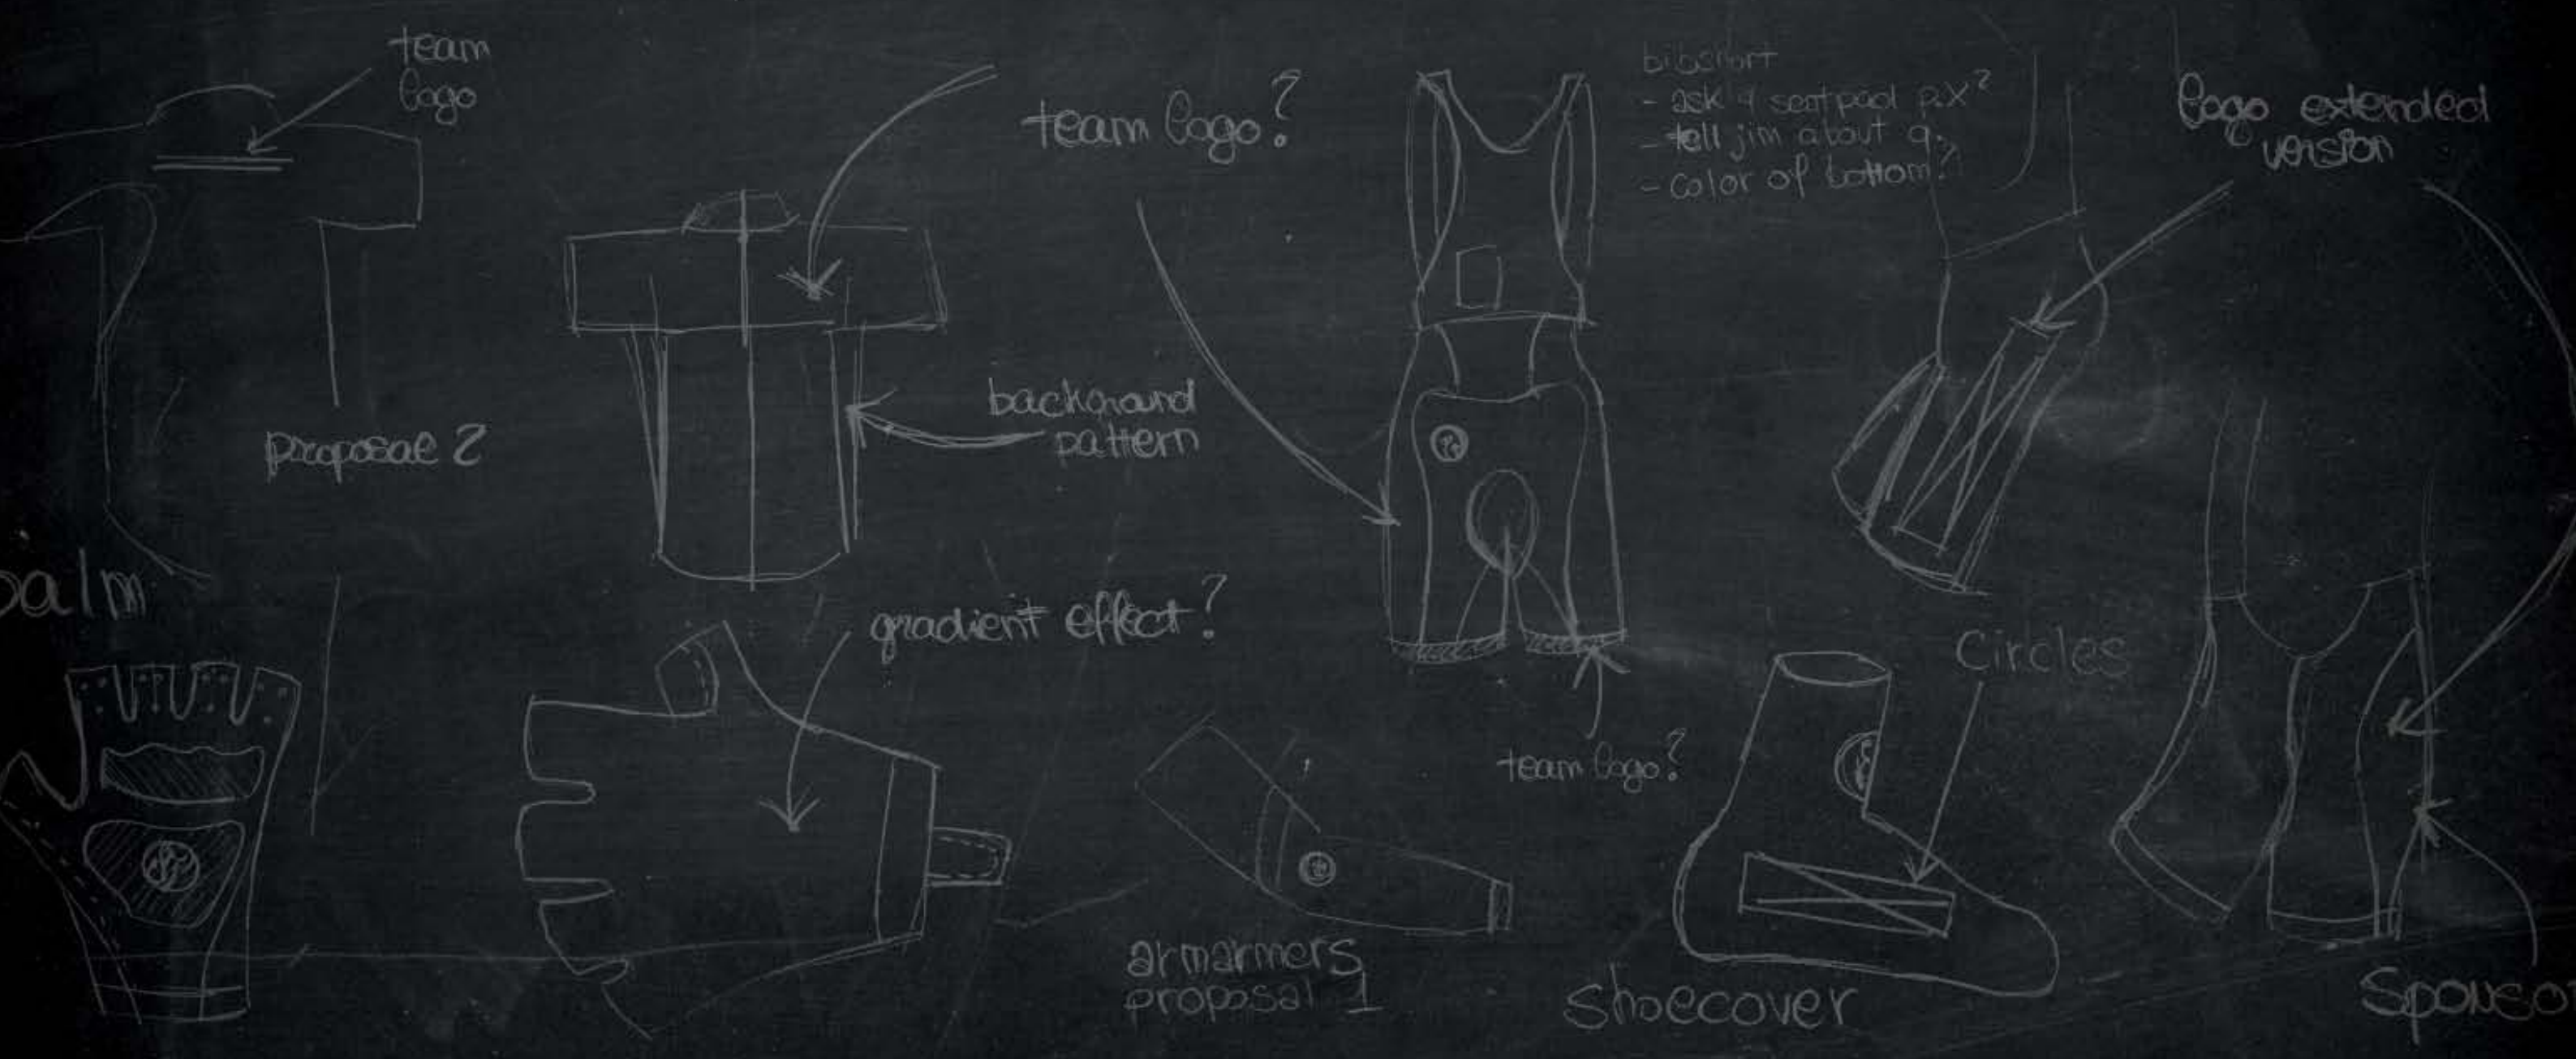 team
logo
team logo?
bibshort
- ask 4 seatpad p.x?
- tell jim about q.
- color of bottom?
logo extended
version
proposal 2
background
pattern
palm
gradient effect?
team logo?
Circles
armarmers
proposal 1
shoecover
Sponso